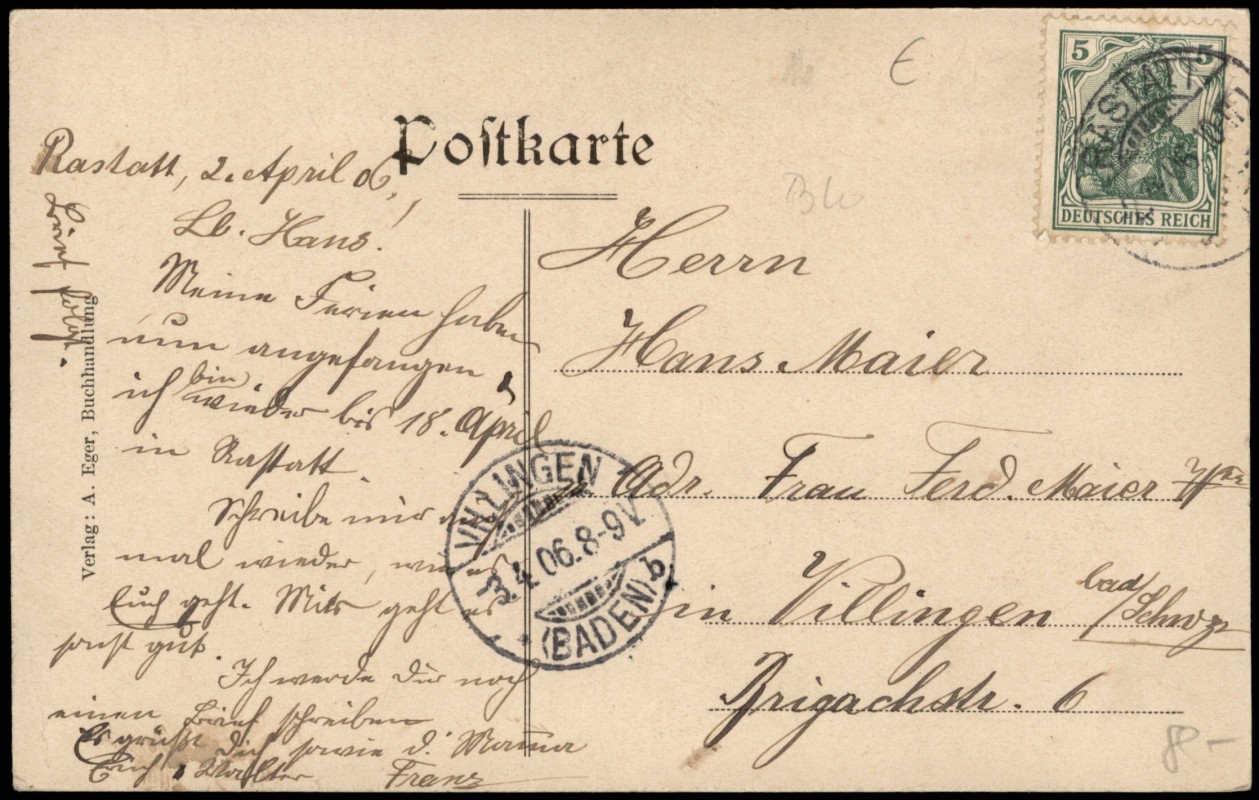 Postkarte
Rastatt, 2. April 06.
Lb. Hans!
Meine Ferien haben
nun angefangen &
ich bin wieder bis 18. April
in Rastatt.
Schreibe mir
mal wieder, wie es
Euch geht. Mir geht es
sonst gut.
Ich werde Dir noch
einen Brief schreiben
Es grüßt Dich sowie d. Mama
Franz
Brief folgt.
Verlag: A. Eger, Buchhandlung
5 5
DEUTSCHES REICH
RASTATT
Herrn
Hans Maier
Adr. Frau Ferd. Maier Wwe
in Villingen bad/Schwz
Brigachstr. 6
VILLINGEN
3.4.06.8-9V.
(BADEN) b
€
8.-